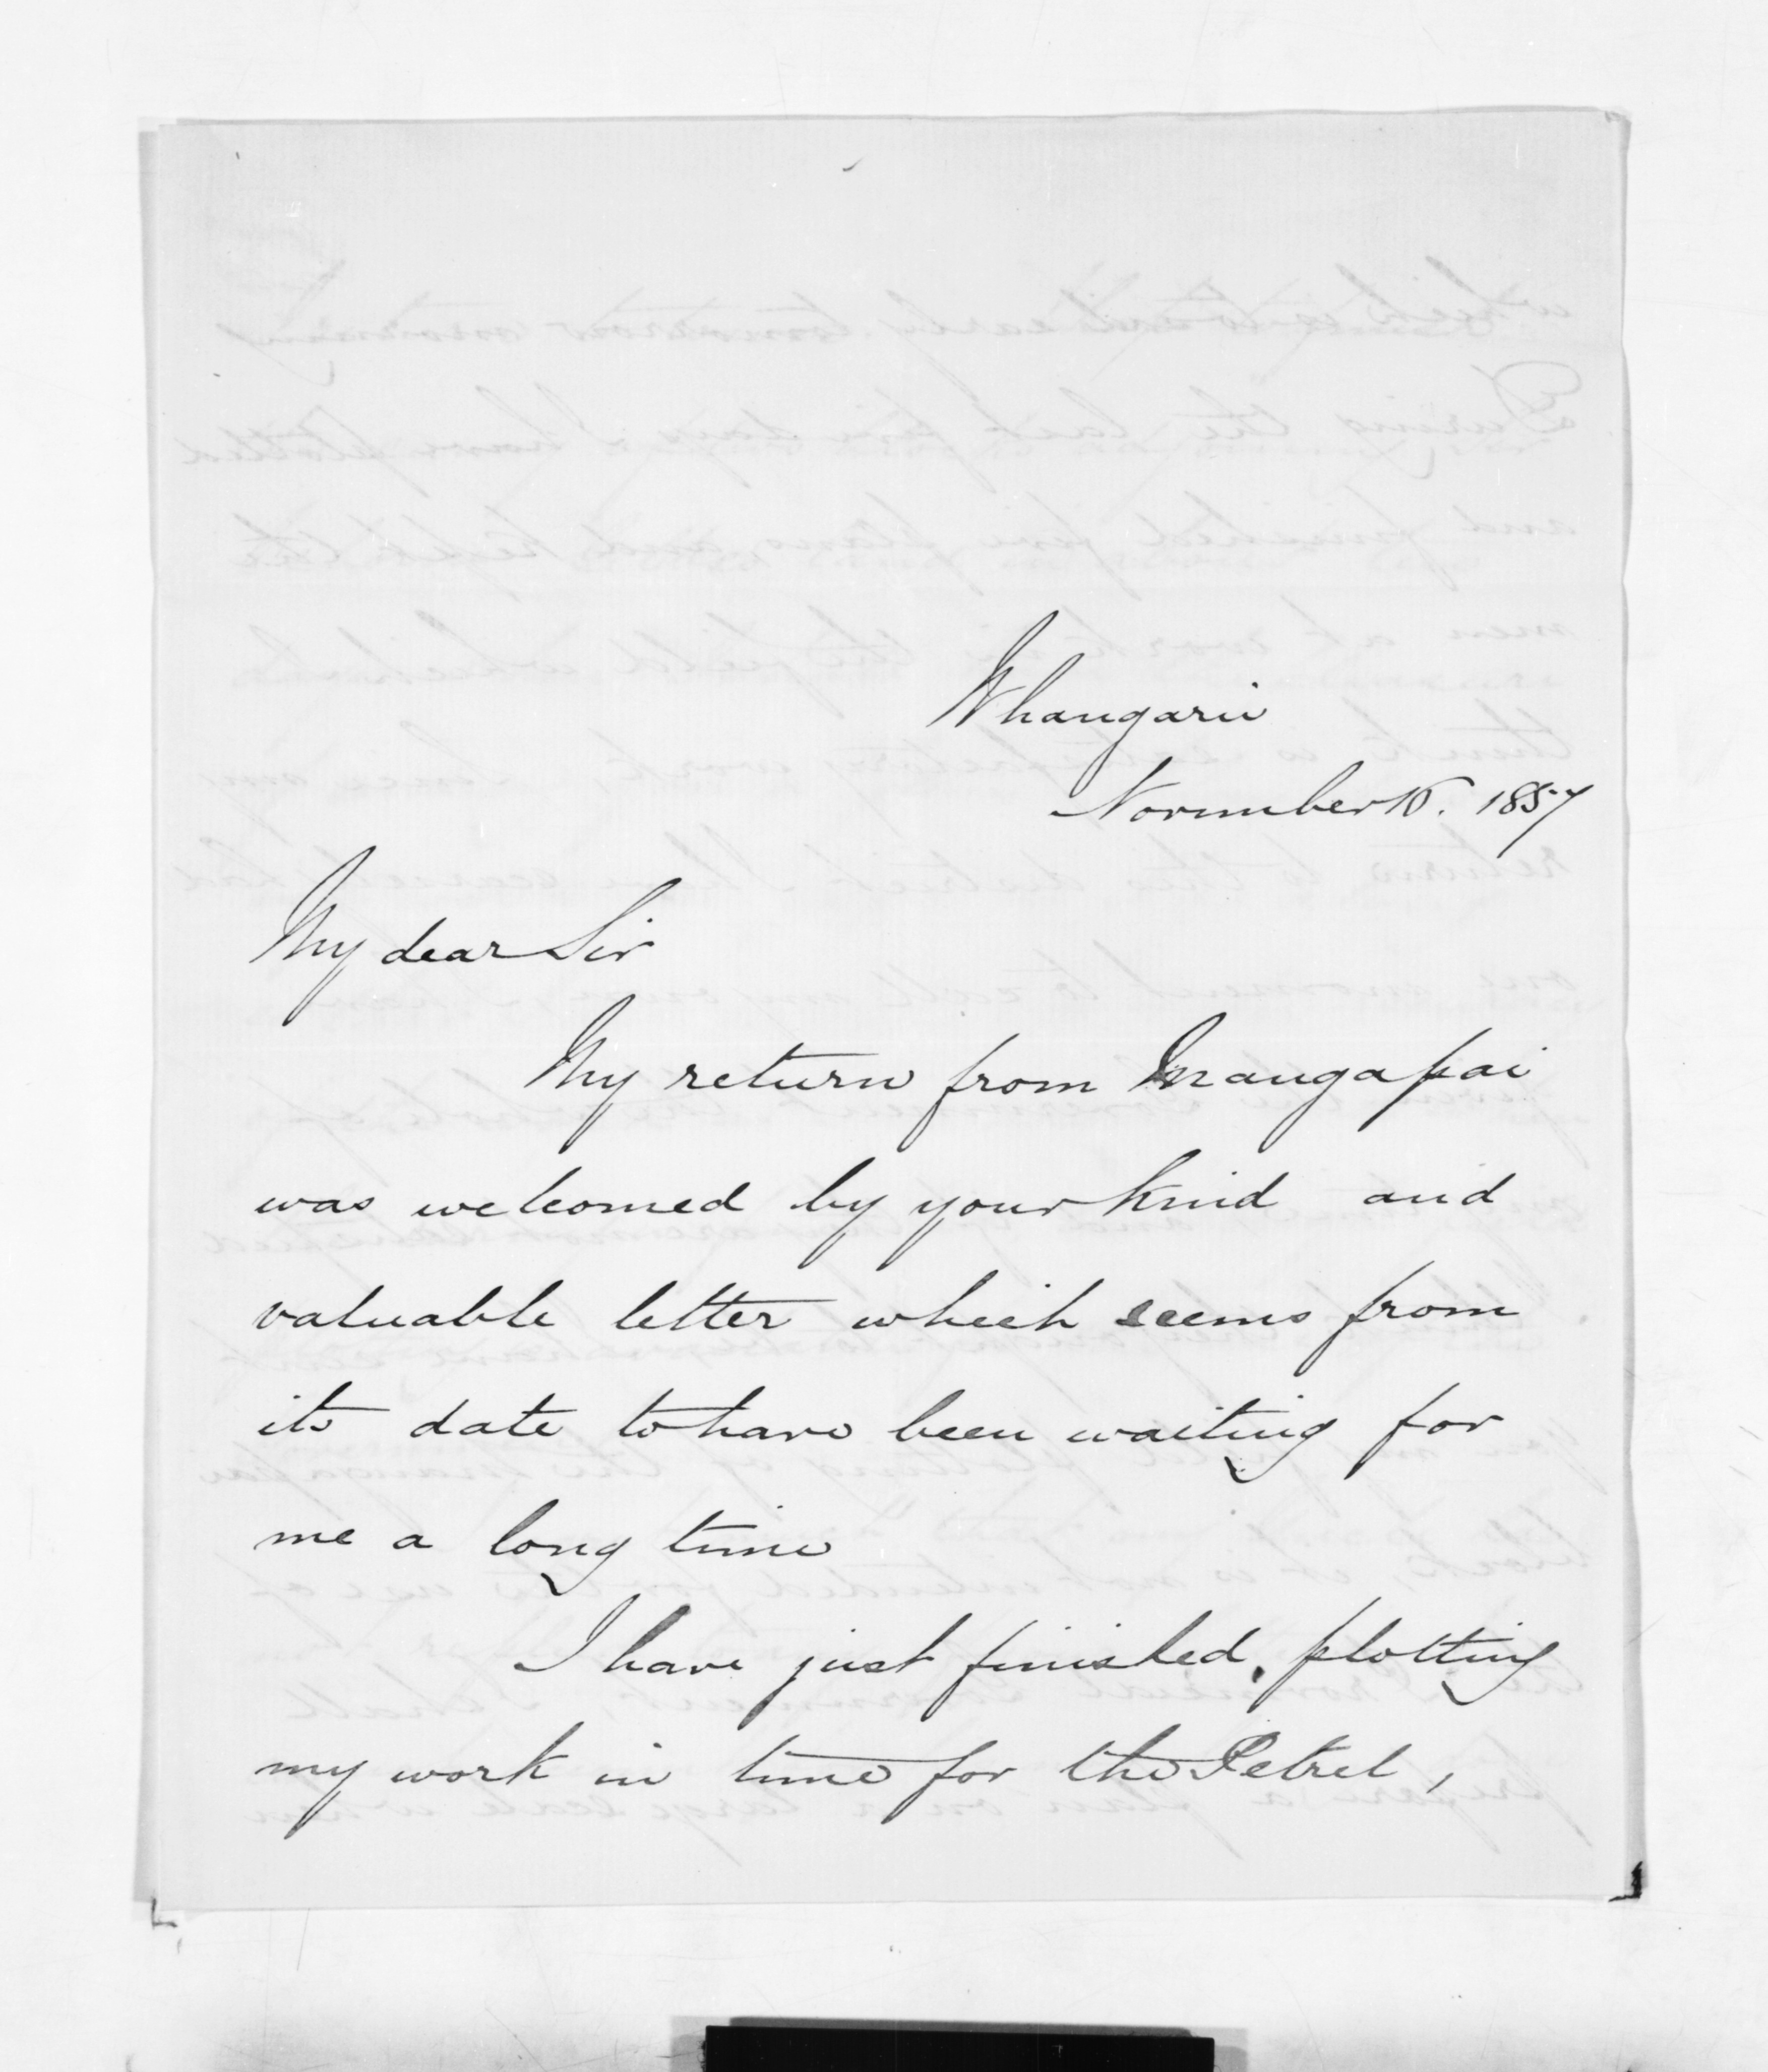 Whangarei
November 16. 1857
My dear Sir
My return from Mangapai
was welcomed by your kind and
valuable letter which seems from
its date to have been waiting for
me a long time
I have just finished, plotting
my work in time for the Petrel,